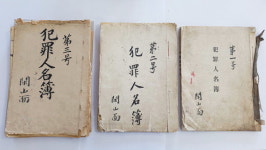 第三号
犯罪人名簿
開山面
第二号
犯罪人名簿
開山面
第一号
犯罪人名簿
開山面